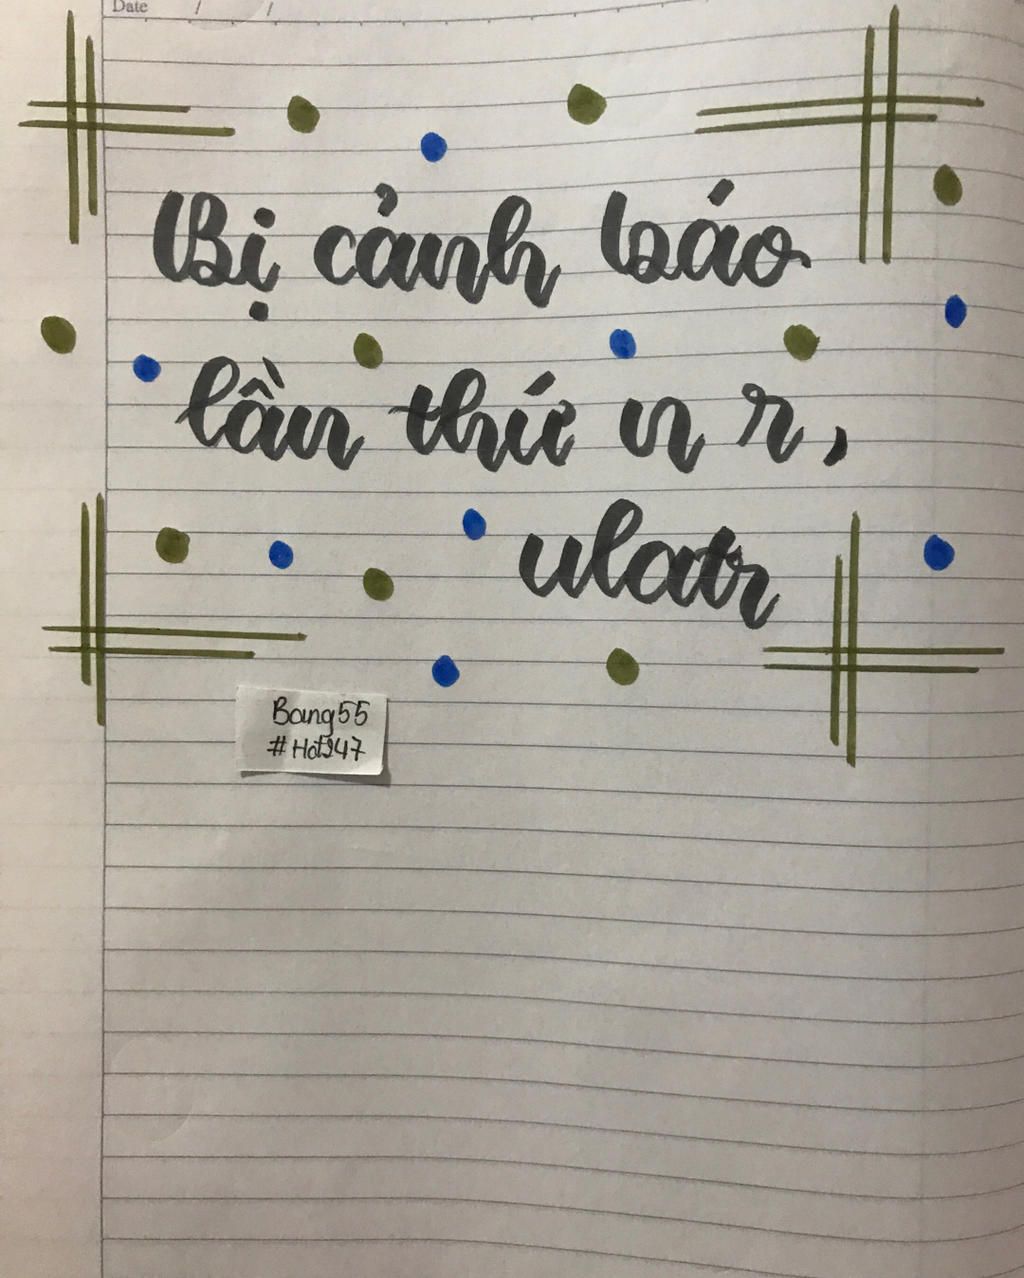 Date / /
Bị cảnh báo
lần thứ n r,
ulatr
Bang55